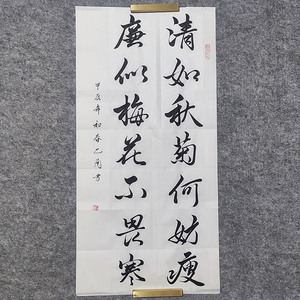 清如秋菊何妨瘦
廉似梅花不畏寒
甲辰年初春